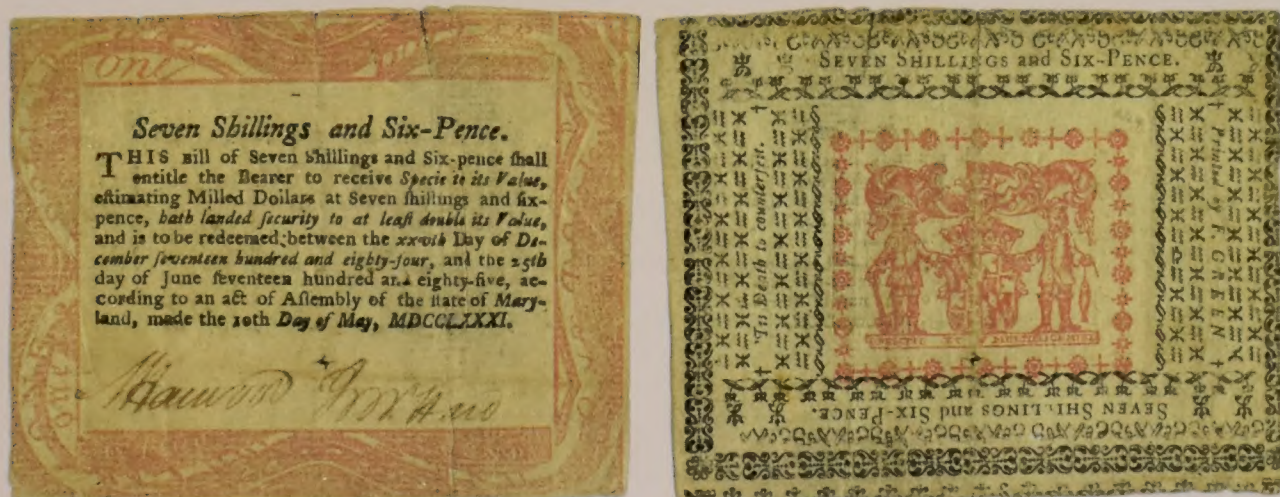 One
Seven Shillings and Six-Pence.
THIS Bill of Seven Shillings and Six-pence ſhall
entitle the Bearer to receive Specie to its Value,
eſtimating Milled Dollars at Seven ſhillings and ſix-
pence, hath landed ſecurity to at leaſt double its Value,
and is to be redeemed between the xxvth Day of De-
cember ſeventeen hundred and eighty-four, and the 25th
day of June ſeventeen hundred and eighty-five, ac-
cording to an act of Aſſembly of the ſtate of Mary-
land, made the 10th Day of May, MDCCLXXXI.
ONE
SEVEN SHILLINGS and SIX-PENCE.
'Tis Death to counterfeit.
Printed by F. GREEN
SEVEN SHILLINGS and SIX-PENCE.